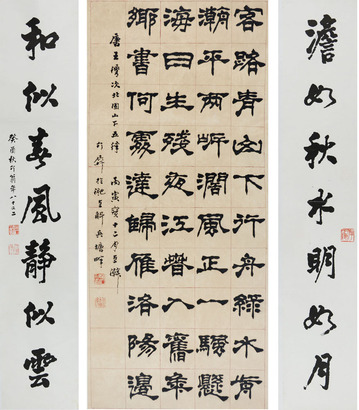 澹如秋水明如月
客路青山下行舟綠水前
潮平兩岸闊風正一帆懸
海日生殘夜江春入舊年
鄉書何處達歸雁洛陽邊
唐王灣次北固山下五律 丙寅
和似春風靜似雲
癸酉秋